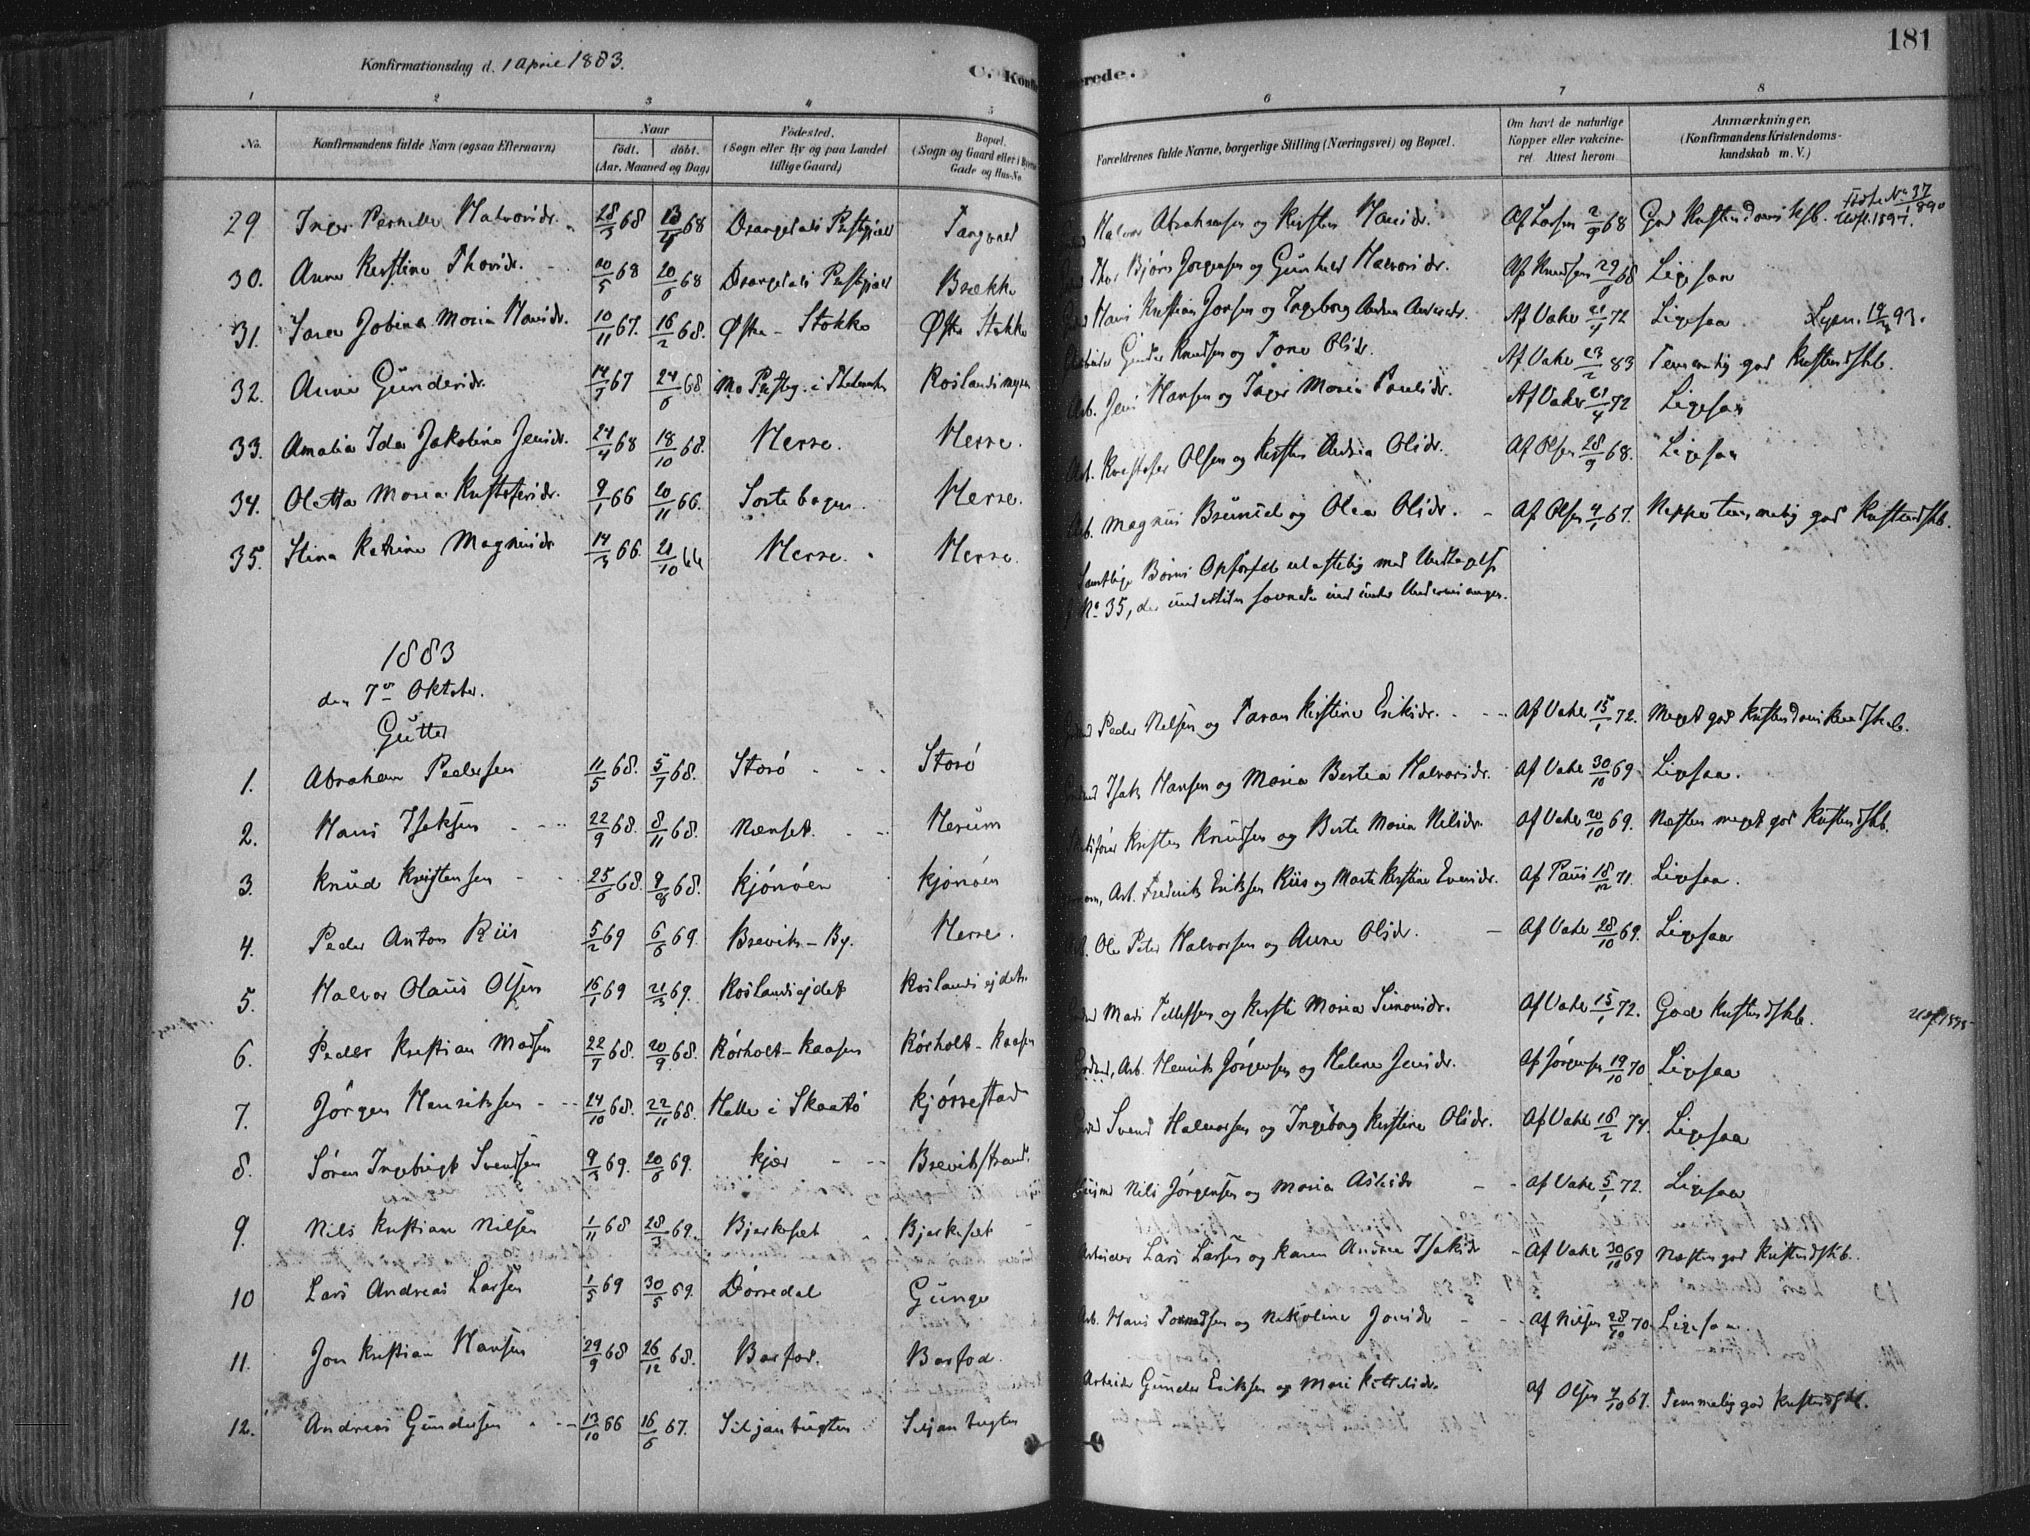 181
Konfirmationsdag d. 1 April 1883. C. Konfi rede.
1 2 3 4 5 6 7 8
No. Konfirmandens fulde Navn (ogsaa Efternavn) Naar født. døbt. (Aar, Maaned og Dag) Födested. (Sogn eller By og paa Landet tillige Gaard) Bopæl. (Sogn og Gaard eller i Byerne Gade og Hus-No. Forældrenes fulde Navne, borgerlige Stilling (Næringsvei) og Bopæl. Om havt de naturlige Kopper eller vakcineret. Attest herom. Anmærkninger. (Konfirmandens Kristendomskundskab m. V.)
29 Inger Pernille Halvorsdr. 28/3 68 13/4 68 Drangedals Prstgjæld Tangvald Halvor Abrahamsen og Kirsten Hansdr. Af Larsen 2/9 68 God Kristendoms ksb. Udfl. 1897.
30. Anne Kirstine Thorsdr. 20/5 68 20/6 68 Drangedals Prstgjæld Brække Thor Bjørn Jørgensen og Gunhild Halvorsdr. Af Knudsen 29/9 68 Ligesaa
31. Sara Jobina Maria Hansdr. 10/11 67. 16/2 68. Østre-Stokke Østre Stokke Hans Kristian Jonsen og Ingeborg Andrea Andersdr. Af Vahl 21/4 72 Ligesaa
32. Anne Gundersdr. 14/7 67 24/6 68 Mo Prstg. i Thelemarken Roslandsmyren Gunder Knudsen og Tone Olsdr. Af Vahl 23/2 83 Temmelig god Kristendskb.
33. Amalia Ida Jakobine Jensdr. 24/4 68 18/10 68. Herre. Herre. Arb. Jens Hansen og Inger Maria Paulsdr. Af Vahl 21/4 72 Ligesaa
34. Oletta Maria Kristofersdr. 9/1 66 20/11 66. Sortebogen Herre. Arb. Kristofer Olsen og Kirsten Andrea Olsdr. Af Olsen 28/9 68. Ligesaa
35. Stina Katrine Magnusdr 14/3 66. 21/10 66 Herre. Herre. Arb. Magnus Brunild og Olea Olsdr. Af Olsen 4/1 67. Neppe temmelig god Kristendskb.
Samtlige Børns Opførsel udaftelig med Undtagelse
f. No. 35, der undertiden sovnede ind under Undervisningen.
1883
den 7de Oktober.
Gutter
1. Abraham Pedersen 11/5 68. 5/7 68. Storø Storø Peder Nilsen og Taran Kirstine Eriksdr. Af Vahl 15/1 72. Meget god Kristendomskundskab.
2. Hans Isaksen 22/9 68. 8/11 68. Nenset Herum Isak Hansen og Maria Bertea Halvorsdr. Af Vahl 30/10 69. Ligesaa.
3. Knud Kristensen 25/6 68. 9/8 68. Kjønøen Kjønøen Kristen Knudsen og Berte Maria Nilsdr. Af Vahl 20/10 69. Næsten meget god Kristendskb.
4. Peder Anton Riis 5/2 69 6/6 69. Breviks-By. Herre. Arb. Frederik Eriksen Riis og Marte Kirstine Evensdr. Af Paus 18/12 71. Ligesaa.
5. Halvor Olaus Olsen 16/1 69 21/3 69. Roslandsejdet Roslandsejdet. Ole Peter Halvorsen og Anne Olsdr. Af Vahl 28/10 69. Ligesaa
6. Peder Kristian Madsen 22/7 68. 20/9 68. Rørholt-Kaasen Rørholt-Kaasen Mads Tellefsen og Kirsti Maria Simonsdr. Af Vahl 15/1 72. God Kristendskb.
7. Jørgen Henriksen 24/10 68. 22/11 68. Helle i Skaatø Kjørrestad Arb. Henrik Jørgensen og Helene Jensdr. Af Jørgensen 19/10 70 Ligesaa
8. Søren Ingebrigt Svendsen 9/3 69. 20/6 69. Kjær Brevikstrand. Svend Halvorsen og Ingeborg Kirstine Olsdr. Af Vahl 16/2 74. Ligesaa
9. Nils Kristian Nilsen 1/11 68 28/3 69. Bjerkeset Bjerkeset Nils Jørgensen og Maria Aslesdr Af Vahl 5/1 72. Ligesaa
10 Lars Andreas Larsen 1/5 69 30/5 69. Dørredal Gunge Arbeider Lars Larsen og Karen Andrea Isaksdr Af Vahl 30/10 69 Næsten god Kristendskb.
11. Jon Kristian Hansen 29/9 68 26/12 68. Barfod. Barfod. Arb. Hans Tormodsen og Nikoline Jonsdr Af Nilsen 28/10 70 Ligesaa.
12. Andreas Gundersen 13/10 66 16/6 67. Siljanbugten Siljanbugten Arbeider Gunder Eriksen og Mari Kittilsdr. Af Olsen 4/10 67. Temmelig god Kristendskb.